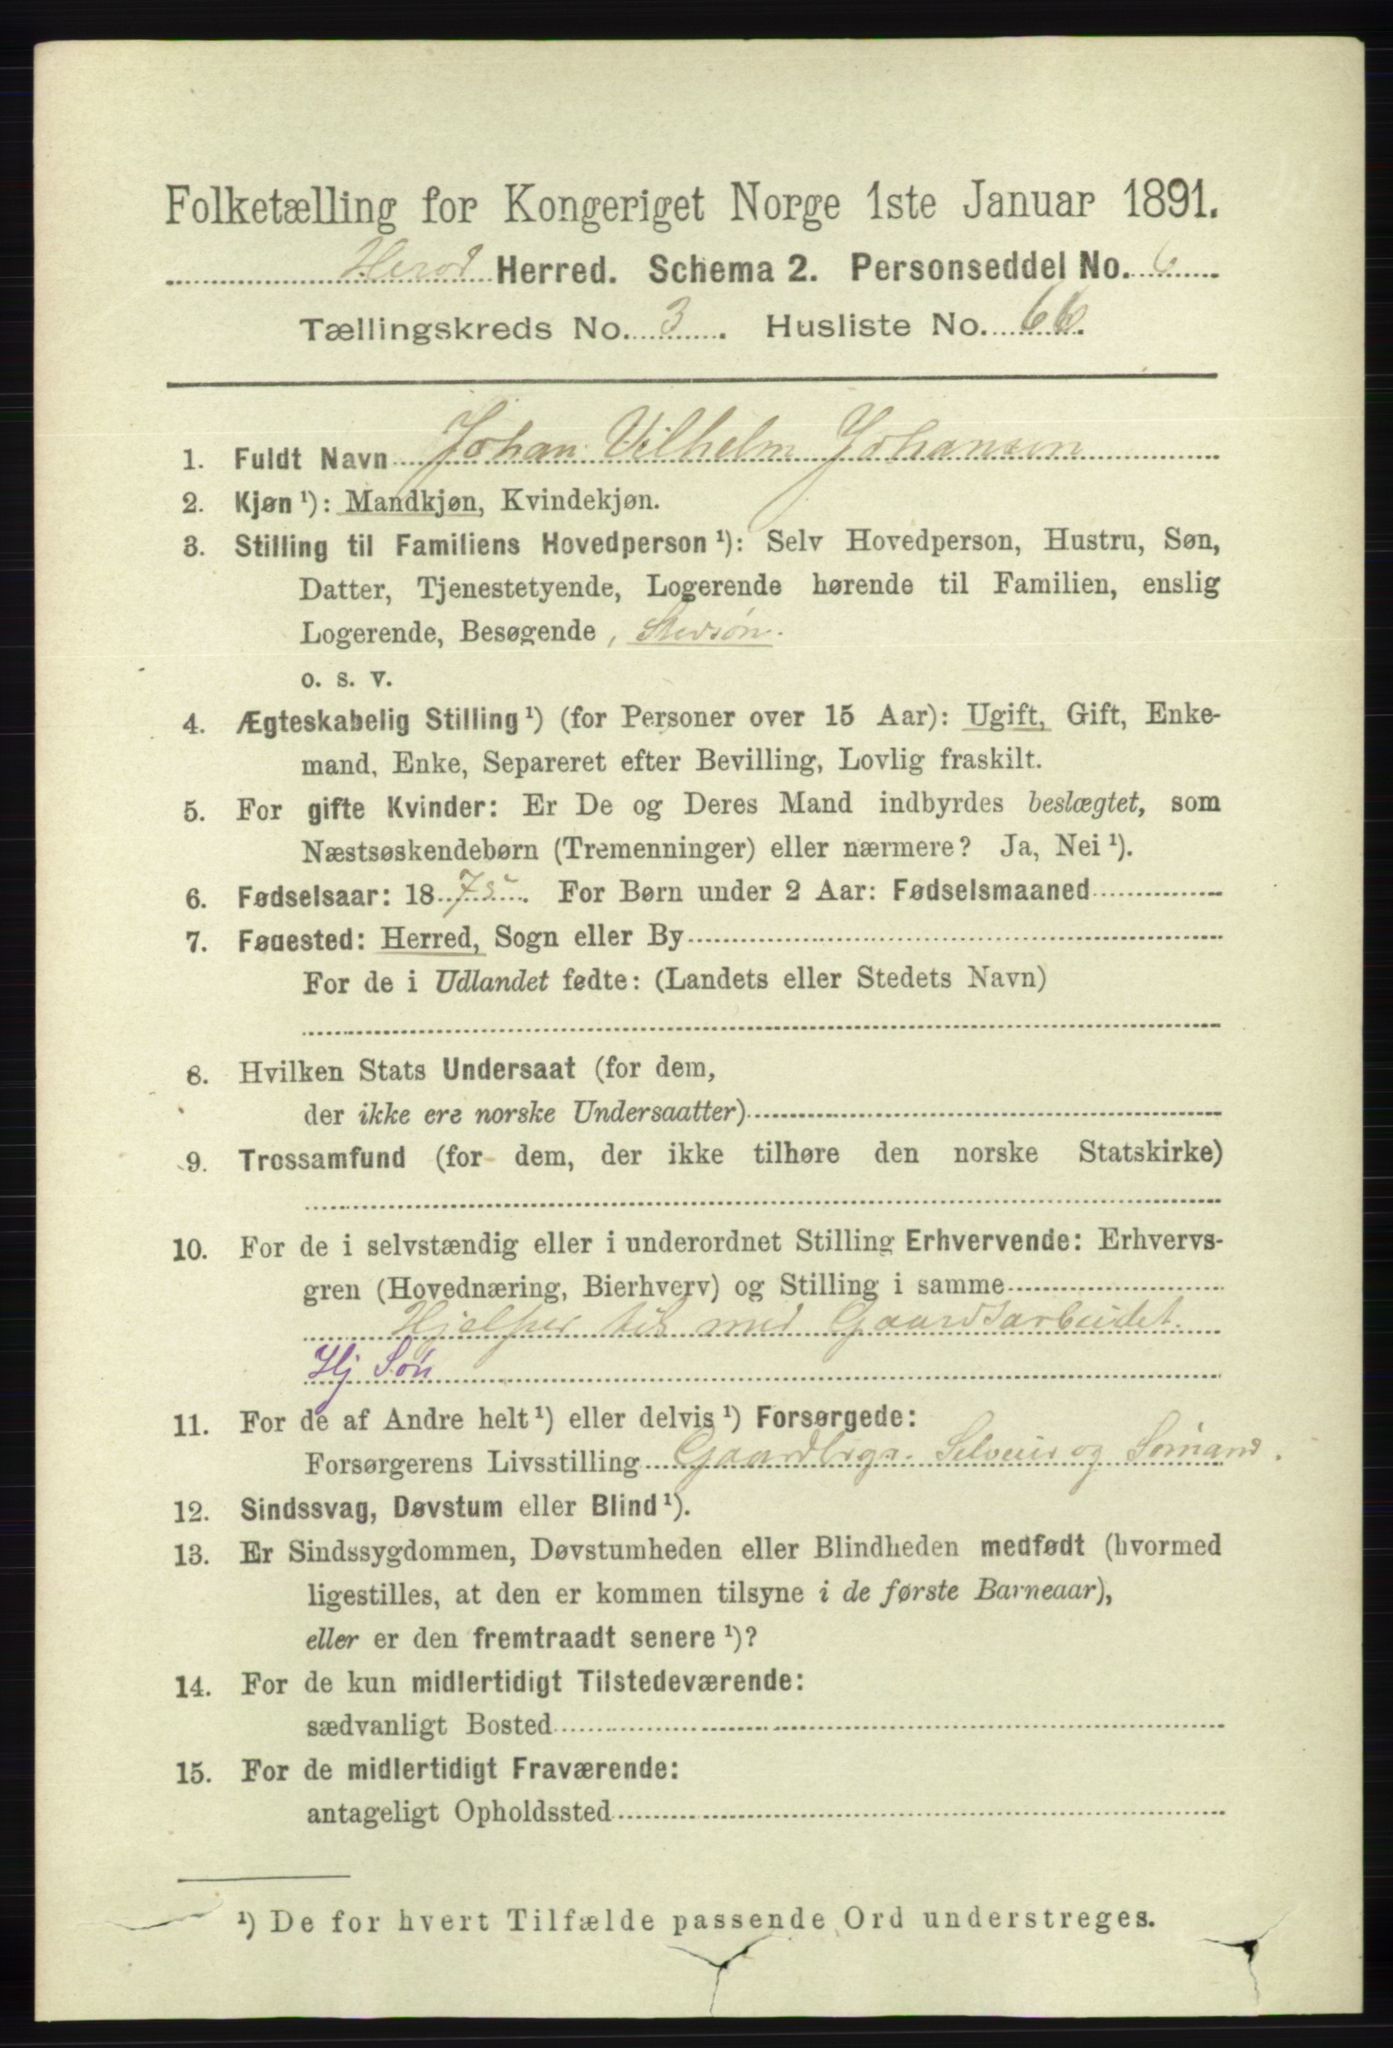 Folketælling for Kongeriget Norge 1ste Januar 1891.
Herred. Schema 2. Personseddel No. 6
Tællingskreds No. 3. Husliste No. 66.
1. Fuldt Navn Johan Vilhelm Johansen
2. Kjøn ¹): Mandkjøn, Kvindekjøn.
3. Stilling til Familiens Hovedperson ¹): Selv Hovedperson, Hustru, Søn,
Datter, Tjenestetyende, Logerende hørende til Familien, enslig
Logerende, Besøgende, Stedsøn.
o. s. v.
4. Ægteskabelig Stilling ¹) (for Personer over 15 Aar): Ugift, Gift, Enke-
mand, Enke, Separeret efter Bevilling, Lovlig fraskilt.
5. For gifte Kvinder: Er De og Deres Mand indbyrdes beslægtet, som
Næstsøskendebørn (Tremenninger) eller nærmere? Ja, Nei ¹).
6. Fødselsaar: 1875. For Børn under 2 Aar: Fødselsmaaned
7. Fødested: Herred, Sogn eller By
For de i Udlandet fødte: (Landets eller Stedets Navn)
8. Hvilken Stats Undersaat (for dem,
der ikke ere norske Undersaatter)
9. Trossamfund (for dem, der ikke tilhøre den norske Statskirke)
10. For de i selvstændig eller i underordnet Stilling Erhvervende: Erhvervs-
gren (Hovednæring, Bierhverv) og Stilling i samme
Hjelper til med Gaardsarbeidet.
Hj Søn
11. For de af Andre helt ¹) eller delvis ¹) Forsørgede:
Forsørgerens Livsstilling Gaardbrger Selveier og Sømand.
12. Sindssvag, Døvstum eller Blind ¹).
13. Er Sindssygdommen, Døvstumheden eller Blindheden medfødt (hvormed
ligestilles, at den er kommen tilsyne i de første Barneaar),
eller er den fremtraadt senere ¹)?
14. For de kun midlertidigt Tilstedeværende:
sædvanligt Bosted
15. For de midlertidigt Fraværende:
antageligt Opholdssted
¹) De for hvert Tilfælde passende Ord understreges.